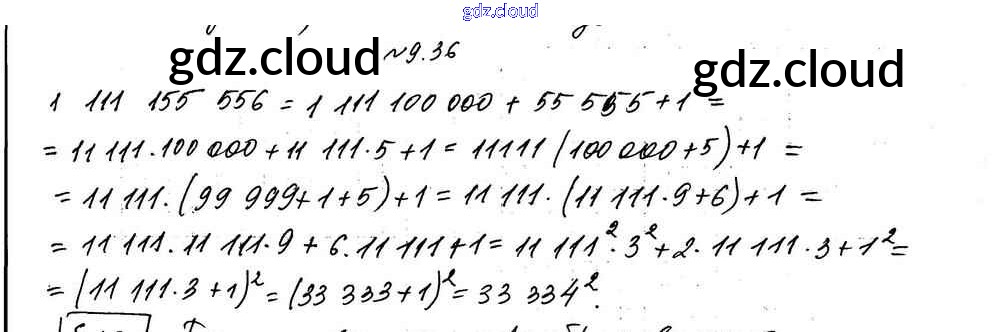 gdz.cloud
gdz.cloud ~9.36 gdz.cloud
1 111 155 556 = 1 111 100 000 + 55 555 + 1 =
= 11 111 · 100 000 + 11 111 · 5 + 1 = 11111 (100 000 + 5) + 1 =
= 11 111 · (99 999 + 1 + 5) + 1 = 11 111 · (11 111 · 9 + 6) + 1 =
= 11 111 · 11 111 · 9 + 6 · 11 111 + 1 = 11 111² · 3² + 2 · 11 111 · 3 + 1² =
= (11 111 · 3 + 1)² = (33 333 + 1)² = 33 334².